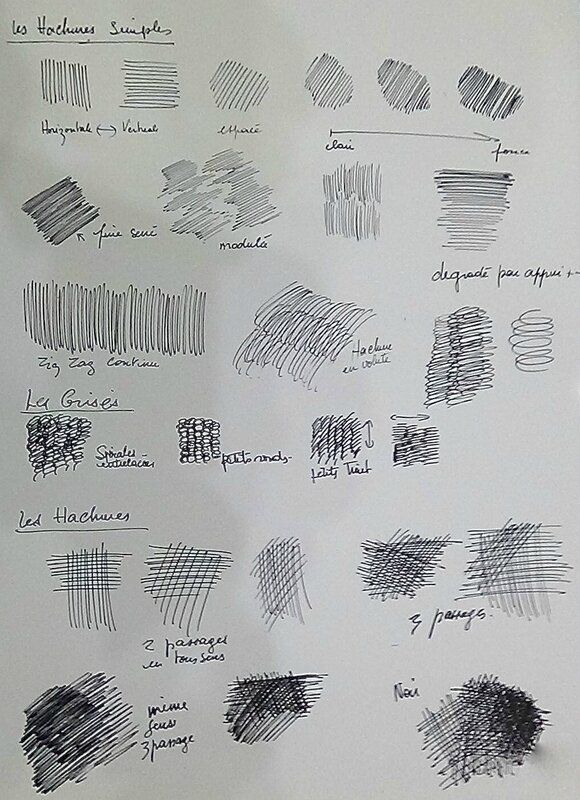 Les Hachures Simples
Horizontale ↔ Vertical
espacé
clair
foncé
fine serré
modulée
dégradé par appui +-
Zig Zag continu
Hachure
en volute
Les Grisés
Spirales
petits ronds
petits Trait
Les Hachures
2 passages
en tous sens
3 passages.
même
sens
3 passage
Noir